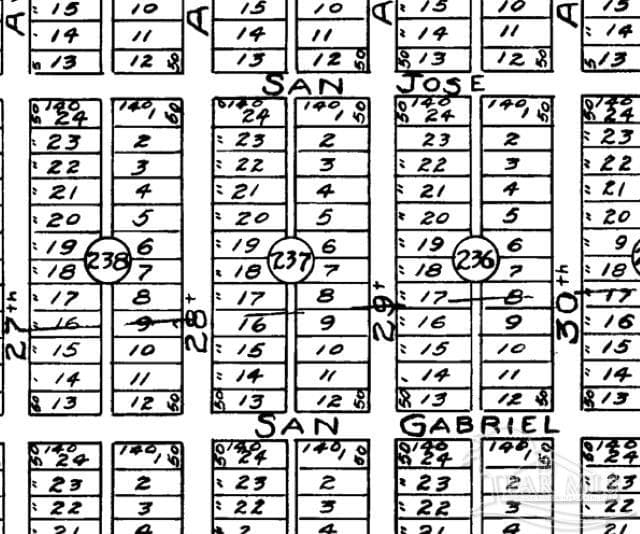 A : 15 10 A 15 10 A 15 10 A 15
· 14 11 14 11 14 11 : 14
5 13 12 50 13 12 50 50 13 12 50 5 13
SAN JOSE
50 140 24 140 1 50 140 24 140 1 50 50 140 24 140 1 50 50 140 24
: 23 2 : 23 2 23 2 : 23
: 22 3 : 22 3 : 22 3 : 22
: 21 4 : 21 4 : 21 4 : 21
: 20 5 : 20 5 : 20 5 : 20
: 19 6 : 19 6 : 19 6 : 9
238 237 236
: 18 7 : 18 7 : 18 7 : 18
27th : 17 8 28t : 17 8 29t : 17 8 30th 17
: 16 9 16 9 : 16 9 : 16
: 15 10 : 15 10 : 15 10 : 15
· 14 11 : 14 11 : 14 11 · 14
50 13 12 50 50 13 12 50 50 13 12 50 50 13
SAN GABRIEL
50 140 24 140 1 50 50 140 24 140 1 50 50 140 24 140 1 50 50 140 24
: 23 2 : 23 2 : 23 2 : 23
: 22 3 : 22 3 : 22 3 : 22
21 4 2 4 21 4 21